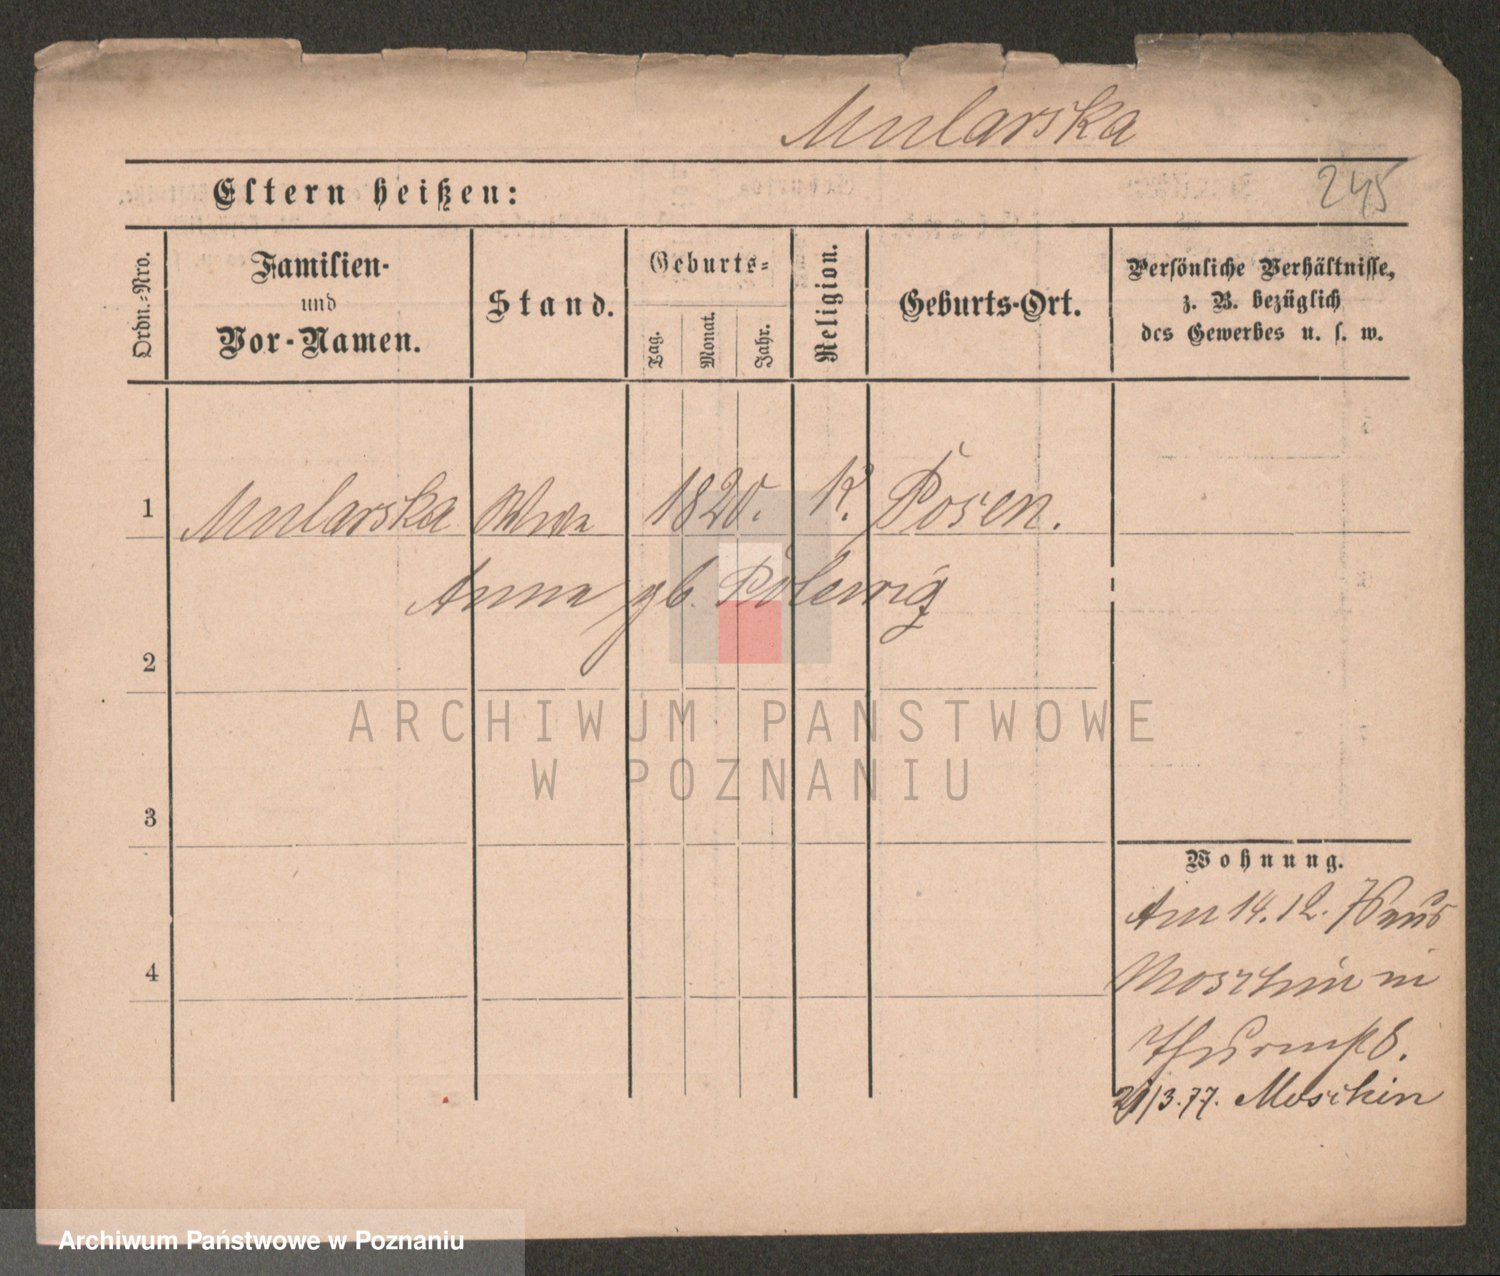 Mularska
Eltern heißen:
245
Ordn.-Nro.
Familien-
und
Vor-Namen.
Stand.
Geburts-
Tag.
Monat.
Jahr.
Religion.
Geburts-Ort.
Persönliche Verhältnisse,
z. B. bezüglich
des Gewerbes u. s. w.
1 Mularska Wwe 1820. K. Posen.
Anna gb.
2
ARCHIWUM PAŃSTWOWE
W POZNANIU
3
Wohnung.
Am 14.12. 76 aus
4
Moschin in
21/3.77. Moschin
Archiwum Państwowe w Poznaniu